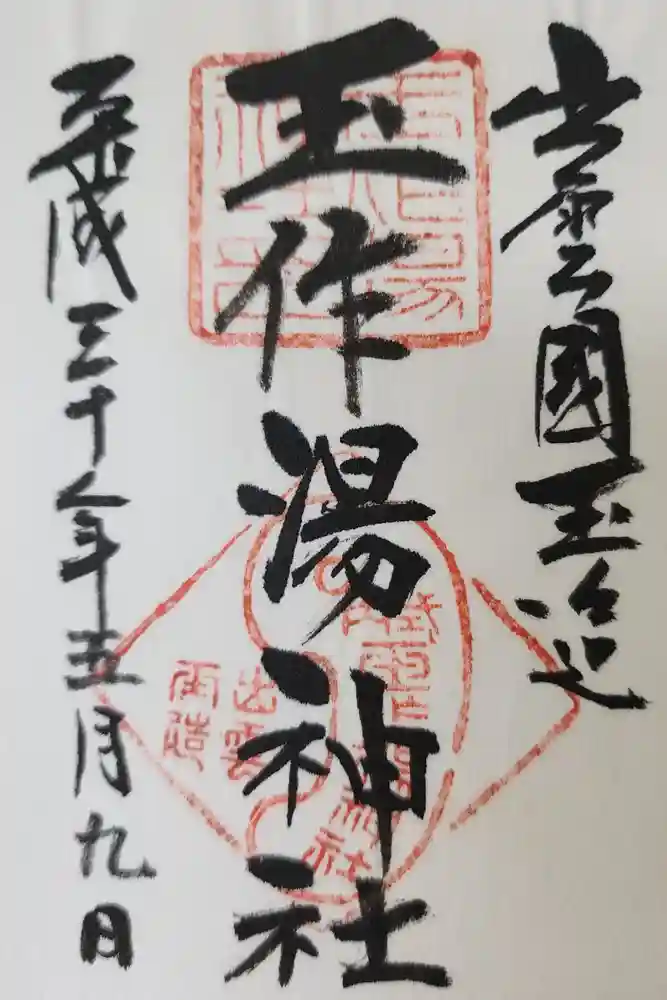 出雲國玉造
玉作湯神社
平成三十年五月九日
出雲
玉造